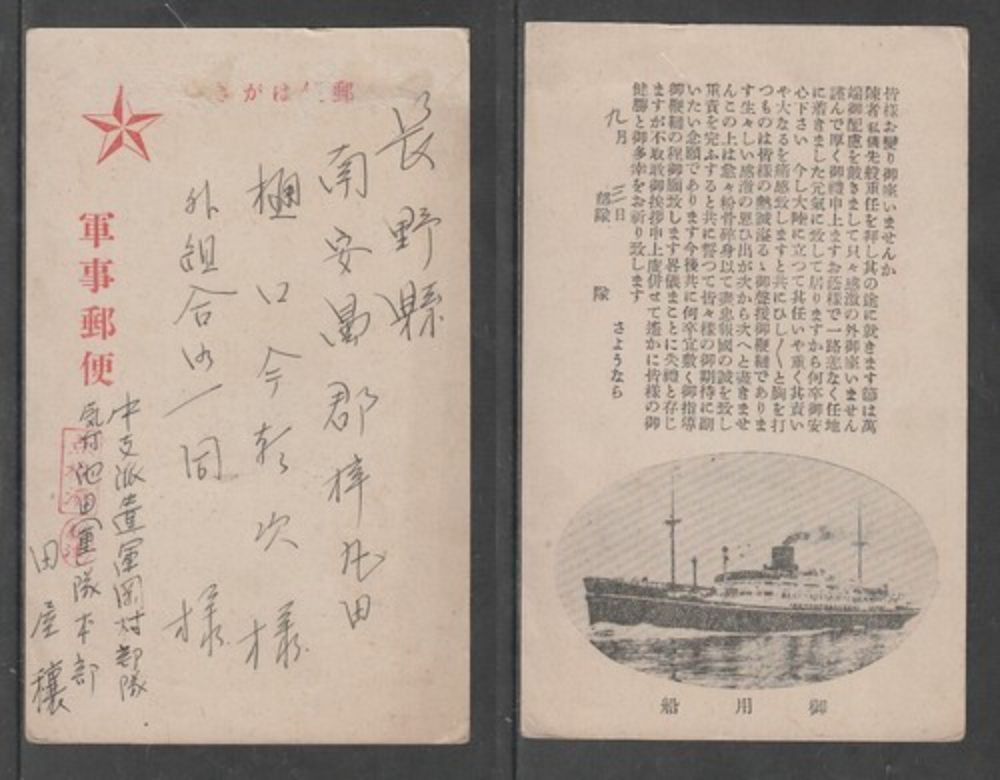 郵 はがき
長野縣
南安曇郡梓
樋口今朝次様
外組合一同様
軍事郵便
中支派遣軍岡村部隊
池田 隊本部
田屋穰
皆様お變り御座いませんか
陳者私儀先般重任を拜し其の途に就きます節は萬
端御配慮を戴きまして只々感激の外御座いません
謹んで厚く御禮申上ますお蔭様で一路恙なく任地
に着きました元氣に致して居りますから何卒御安
心下さい 今し大陸に立つて其任いや重く其責い
や大なるを痛感致しますと共にひし〳〵と胸を打
つものは皆様の熱誠溢るゝ御聲援御鞭韃でありま
す生々しい感激の思ひ出が次から次へと盡きませ
んこの上は愈々粉骨碎身以て盡忠報國の誠を致し
重責を完ふすると共に誓つて皆々様の御期待に副
いたい念願であります今後共に何卒宜敷く御指導
御鞭韃の程御願致します畧儀まことに失禮と存じ
ますが不取敢御挨拶申上度併せて遙かに皆様の御
健勝と御多幸をお祈り致します
さようなら
九月 三日
部隊 隊
御用船